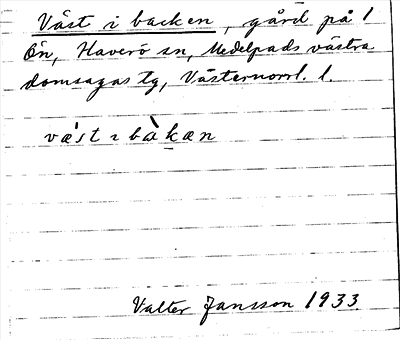 Väst i backen, gård på 1
Ön, Haverö sn, Medelpads västra
domsagas tg, Västernorrl. l.
vǽst ɩ bàkæn
Valter Jansson 1933.